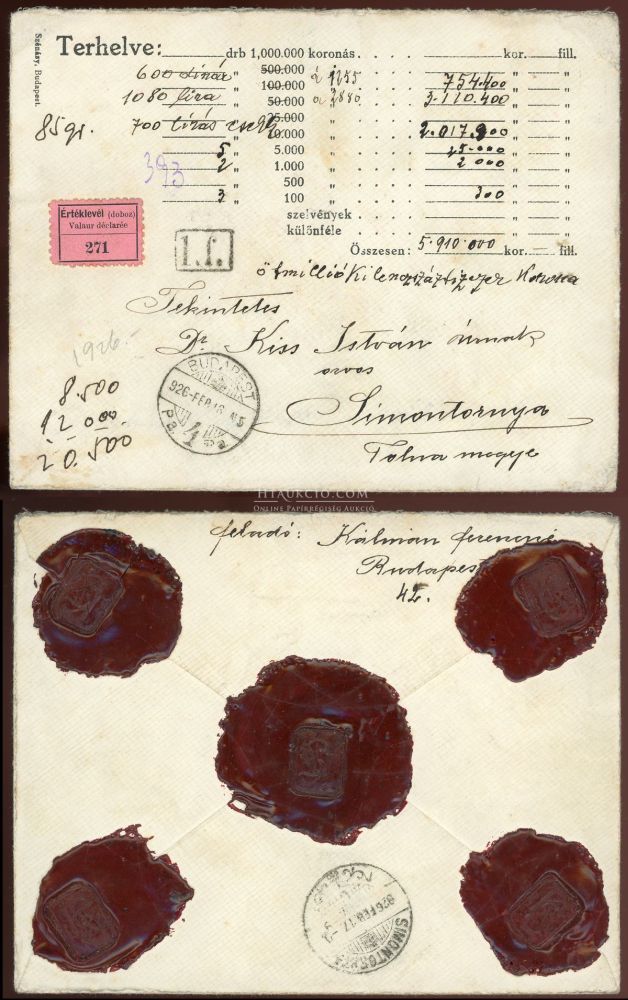 Szénásy, Budapest.
Terhelve: drb 1,000.000 koronás kor. fill.
600 dinár " 500.000 " á 1255 " "
100.000 754.400
1080 lira " 50.000 " á 2880 3.110.400 " "
85 gr. 700 lirás csekk 25.000
" 10.000 " 2.017.900 " "
5 " 5.000 " 25.000 " "
393
2 " 1.000 " 2000 " "
" 500 " " "
3 " 100 " 300 " "
szelvények " "
különféle " "
Összesen: 5.910.000 kor. — fill.
Értéklevél (doboz)
Valeur déclarée
271
1.f.
ötmillió Kilencszáztizezer Korona
Tekintetes
Dr. Kiss István úrnak
orvos
Simontornya
Tolna megye
1926.
8.500
12.000
20.500
BUDAPEST
926-FEB.16
HTAUKCIO.COM
ONLINE PAPÍRRÉGISÉG AUKCIÓ
feladó: Kálmán Ferencné
Budapest
42.
SIMONTORNYA
926 FEB.17